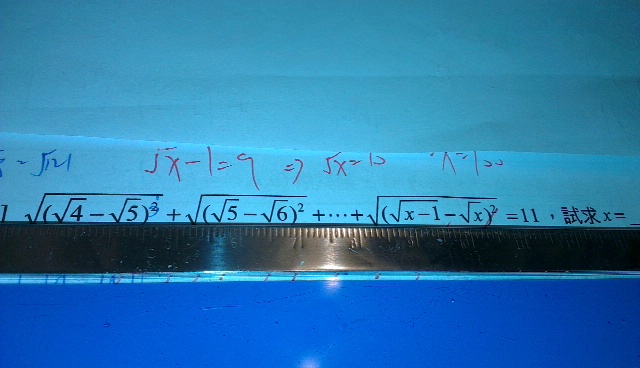 = √121 √x - 1 = 9 ⇒ √x = 10 ∴ x = 100
√(√4 − √5)² + √(√5 − √6)² + ⋯ + √(√x−1 − √x)² = 11，試求 x =